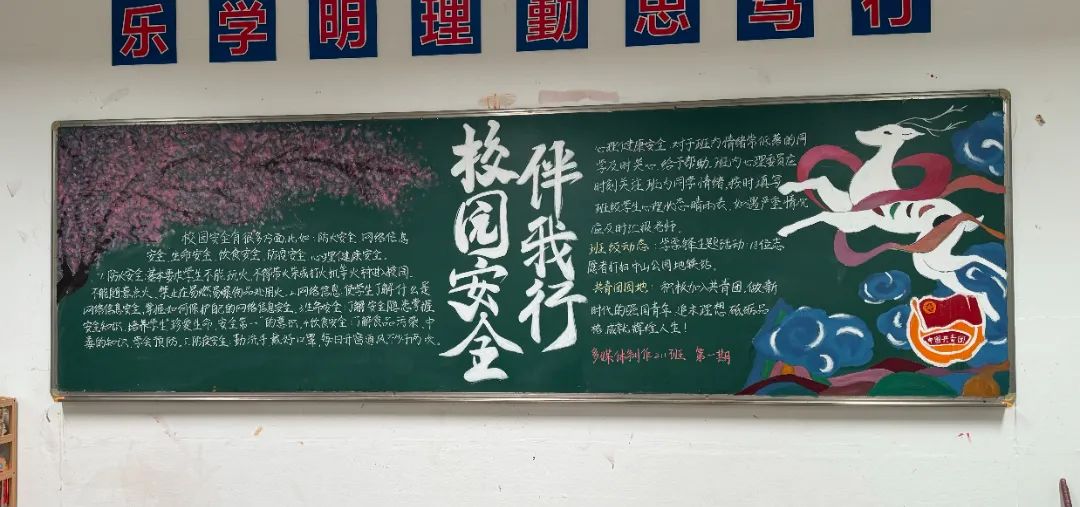 乐学明理勤思笃行
校园安全
伴我行
校园安全有很多方面,比如:防火安全、网络信息
安全、生命安全、饮食安全、防疫安全、心理健康安全。
1.防火安全:基本要求学生不能玩火,不得带火柴或打火机等火种进入校园,
不能随意点火,禁止在易燃易爆物品处用火。2.网络信息:使学生了解什么是
网络信息安全,掌握如何保护自己的网络信息安全。3.生命安全:了解安全隐患掌握
安全知识,培养学生“珍爱生命,安全第一”的意识。4.饮食安全:了解食品污染、中
毒的知识,学会预防。5.防疫安全:勤洗手戴好口罩,每日开窗通风
心理健康安全:对于班内情绪常低落的同
学及时关心,给予帮助。班内心理委员应
时刻关注班内同学情绪,按时填写
班级学生心理状态晴雨表,如遇严重情况
应及时汇报老师。
班级动态:学雷锋主题活动,13位志
愿者打扫中山公园地铁站。
共青团园地:积极加入共青团,做新
时代的强国青年,追求理想,砥砺品
格,成就辉煌人生!
多媒体制作211班 第一期
中国共青团